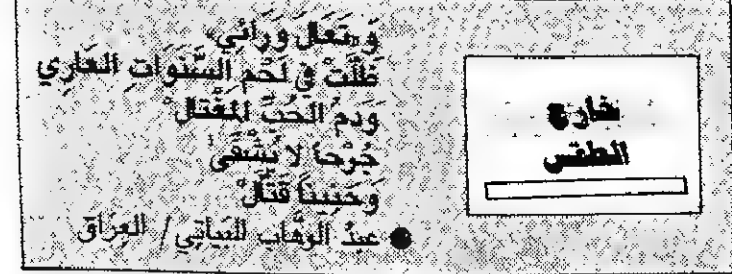 خارج
الطقس
وَ«تَعَالَ وَرَائِي»
ظَلَّتْ فِي لَحْمِ السَّنَوَاتِ العَارِي
وَدَمُ الحُبِّ المُغْتَالْ
جُرْحاً لا يُشْفَى
وَحَنِيناً قَتَّالْ
● عبدُ الوهَّاب البَياتي / العِرَاق